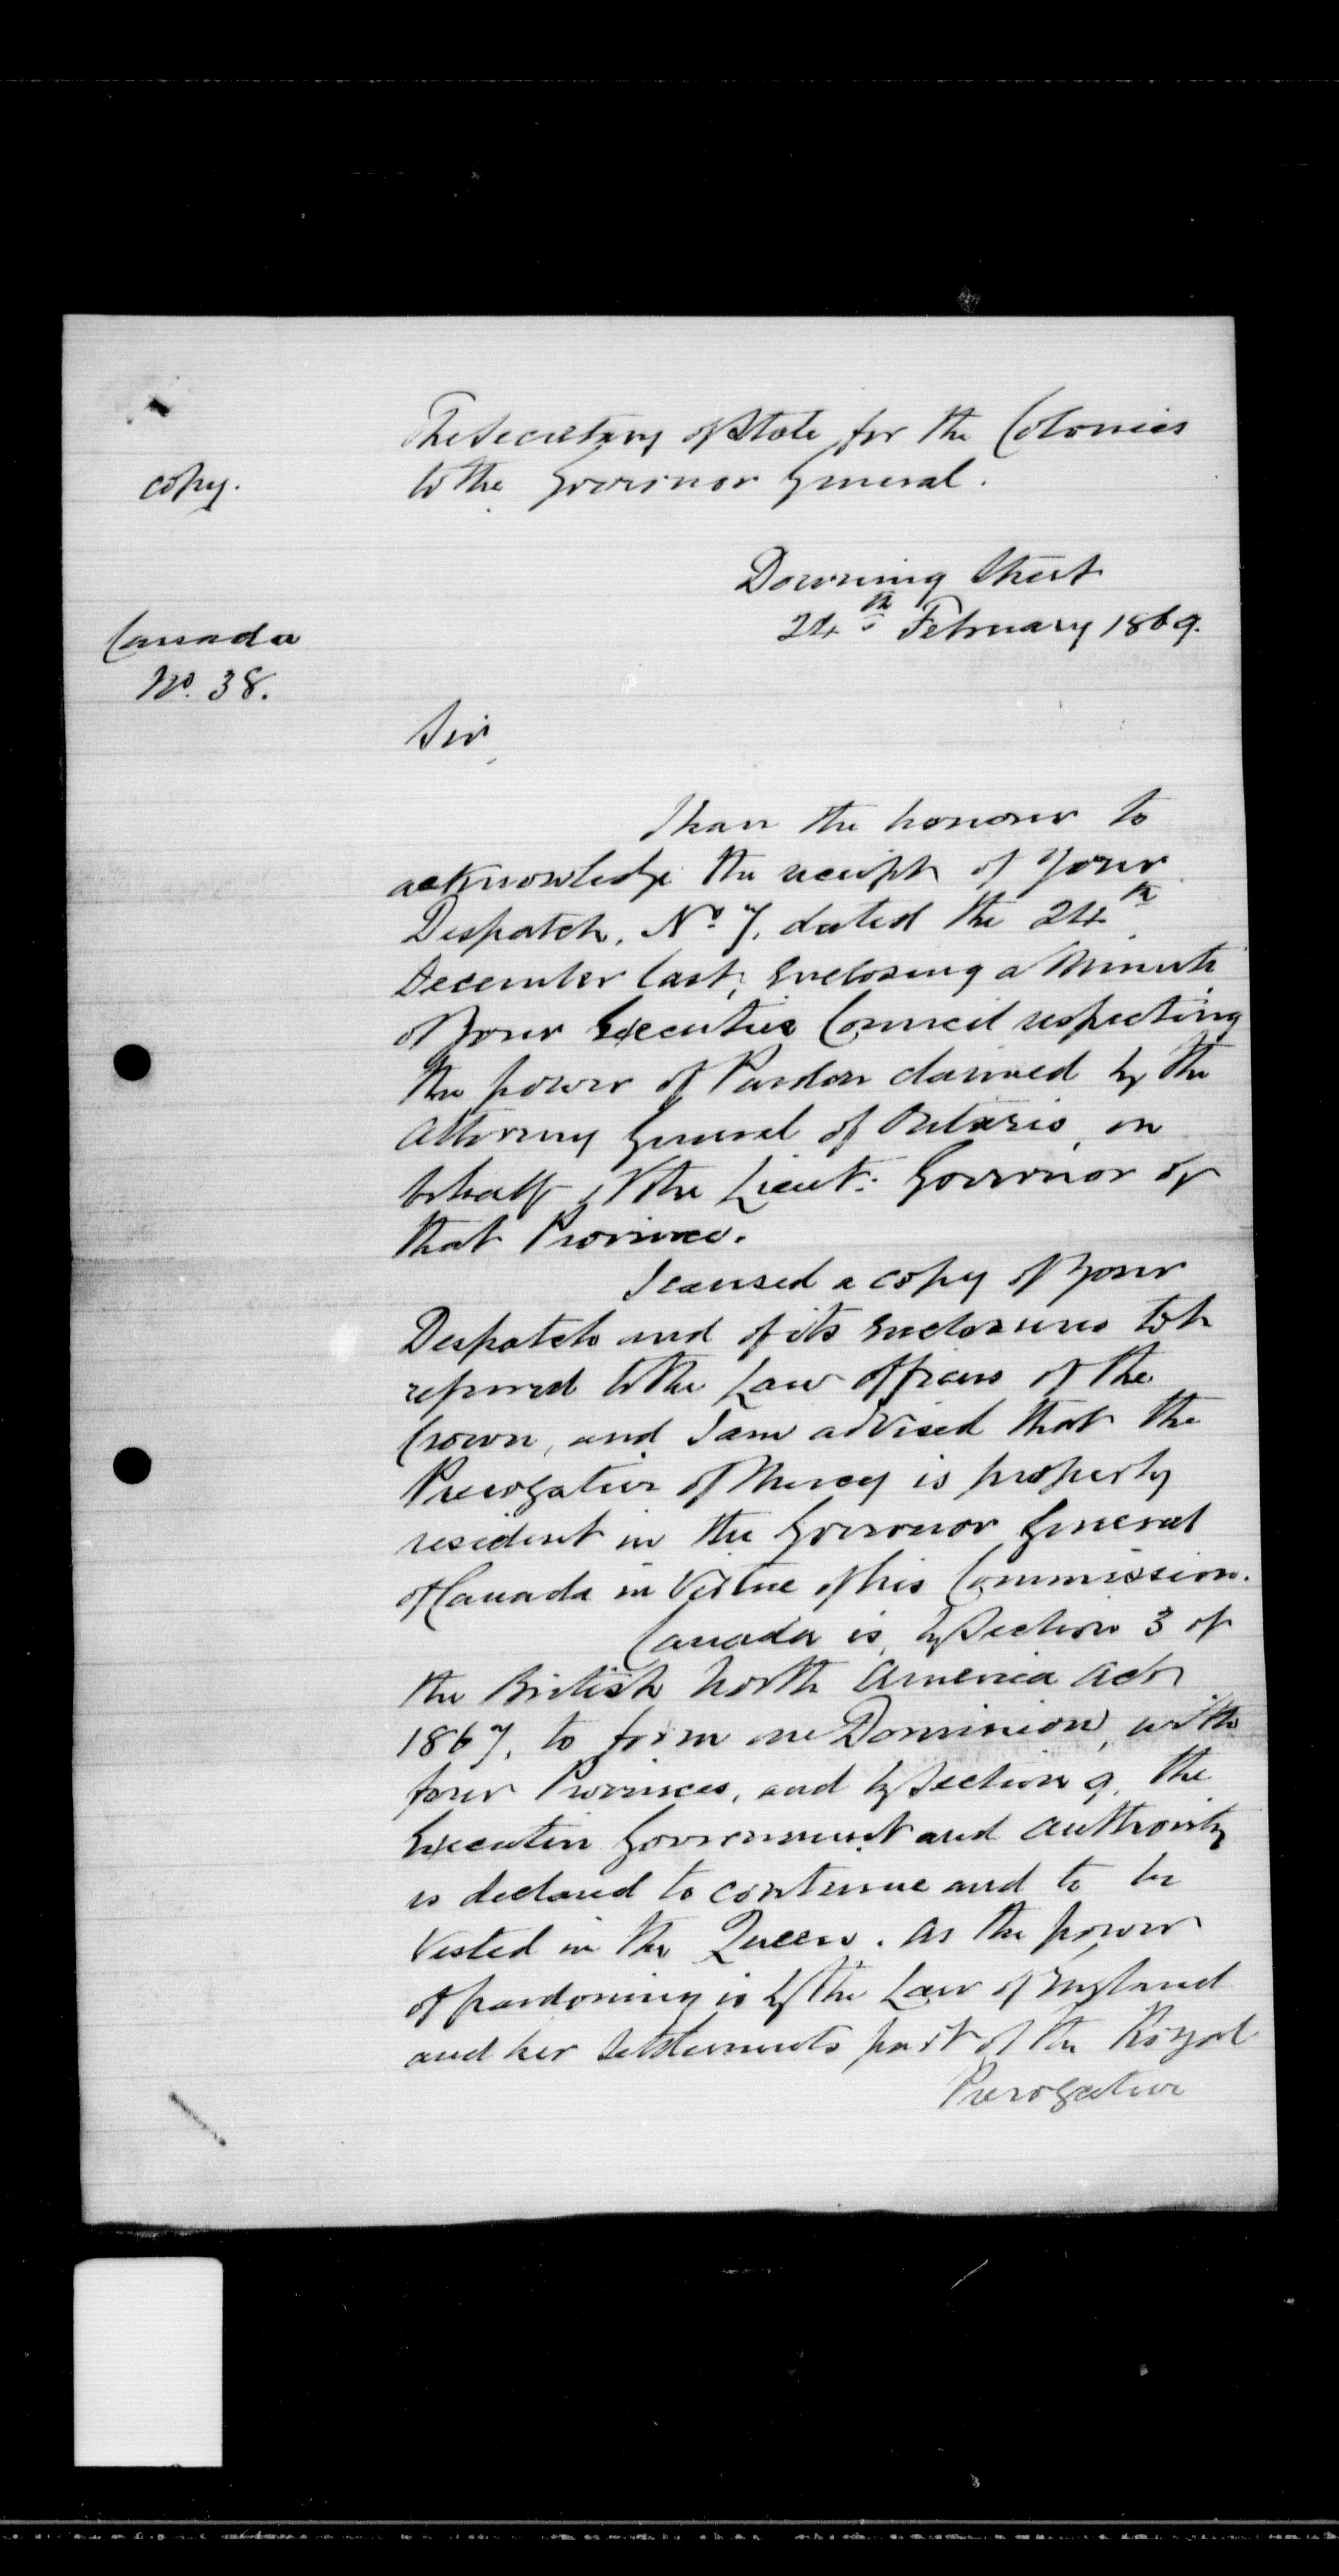 The Secretary of State for the Colonies
copy.
to the Governor General.
Downing Street
24th February 1869.
Canada
No. 38.
Sir,
I have the honour to
acknowledge the receipt of Your
Despatch, No 7, dated the 24th
December last, enclosing a Minute
of Your Executive Council respecting
the power of Pardon claimed by the
Attorney General of Ontario, on
behalf of the Lieut: Governor of
that Province.
I caused a copy of Your
Despatch and of its enclosures to be
referred to the Law officers of the
Crown, and I am advised that the
Prerogative of Mercy is properly
resident in the Governor General
of Canada in Virtue of his Commission.
Canada is, by Section 3 of
the British North America Act
1867, to form one Dominion, with
four Provinces, and by Section 9, the
Executive Government and authority
is declared to continue and to be
Vested in the Queen. As the power
of pardoning is by the Law of England
and her Settlements part of the Royal
Prerogative